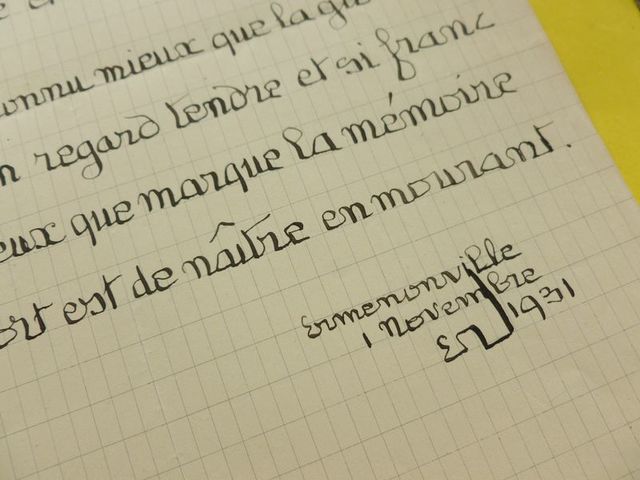 onnu mieux que la
regard tendre et si franc
eux que marque la mémoire
ort est de naître en mourant.
Ermenonville
1 novembre
1931